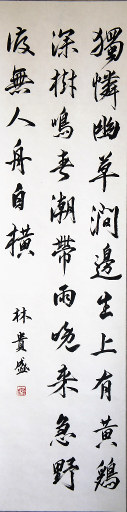 獨憐幽草澗邊生上有黃鸝
深樹鳴春潮帶雨晚来急野
渡無人舟自橫
林貴盛